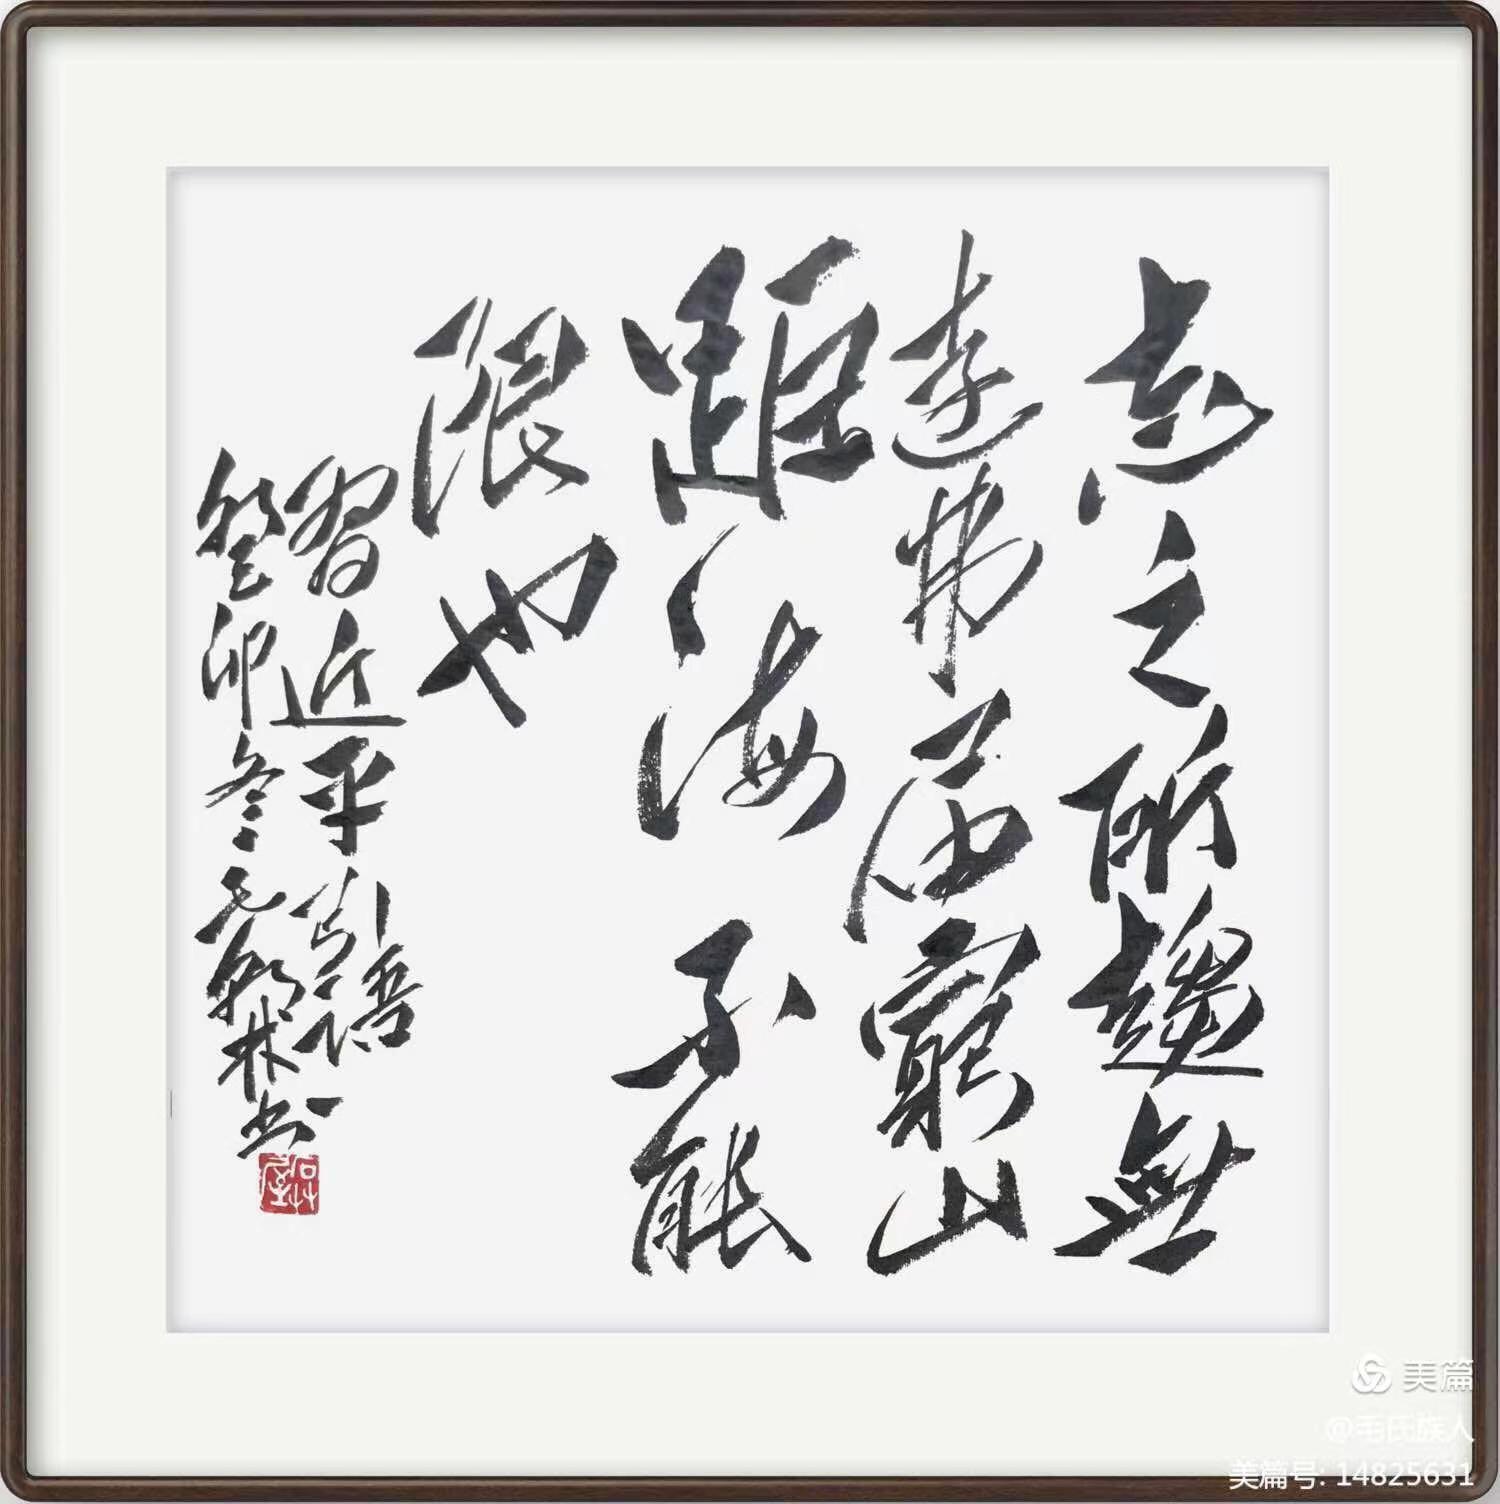 志之所趨無
遠弗屆窮山
距海不能
限也
習近平引語
癸卯冬毛朝林书
美篇
@毛氏族人
美篇号: 14825631